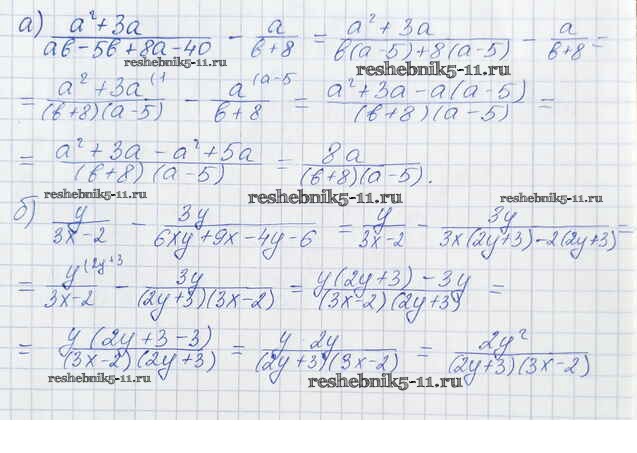 а) (a²+3a)/(ab-5b+8a-40) - a/(b+8) = (a²+3a)/(b(a-5)+8(a-5)) - a/(b+8) =
reshebnik5-11.ru
reshebnik5-11.ru
= (a²+3a ⁽¹)/((b+8)(a-5)) - (a ⁽ᵃ⁻⁵)/(b+8) = (a²+3a-a(a-5))/((b+8)(a-5)) =
= (a²+3a-a²+5a)/((b+8)(a-5)) = 8a/((b+8)(a-5)).
reshebnik5-11.ru
reshebnik5-11.ru
reshebnik5-11.ru
б) y/(3x-2) - 3y/(6xy+9x-4y-6) = y/(3x-2) - 3y/(3x(2y+3)-2(2y+3)) =
= (y ⁽²ʸ⁺³)/(3x-2) - 3y/((2y+3)(3x-2)) = (y(2y+3)-3y)/((3x-2)(2y+3)) =
= (y(2y+3-3))/((3x-2)(2y+3)) = (y·2y)/((2y+3)(3x-2)) = 2y²/((2y+3)(3x-2))
reshebnik5-11.ru
reshebnik5-11.ru